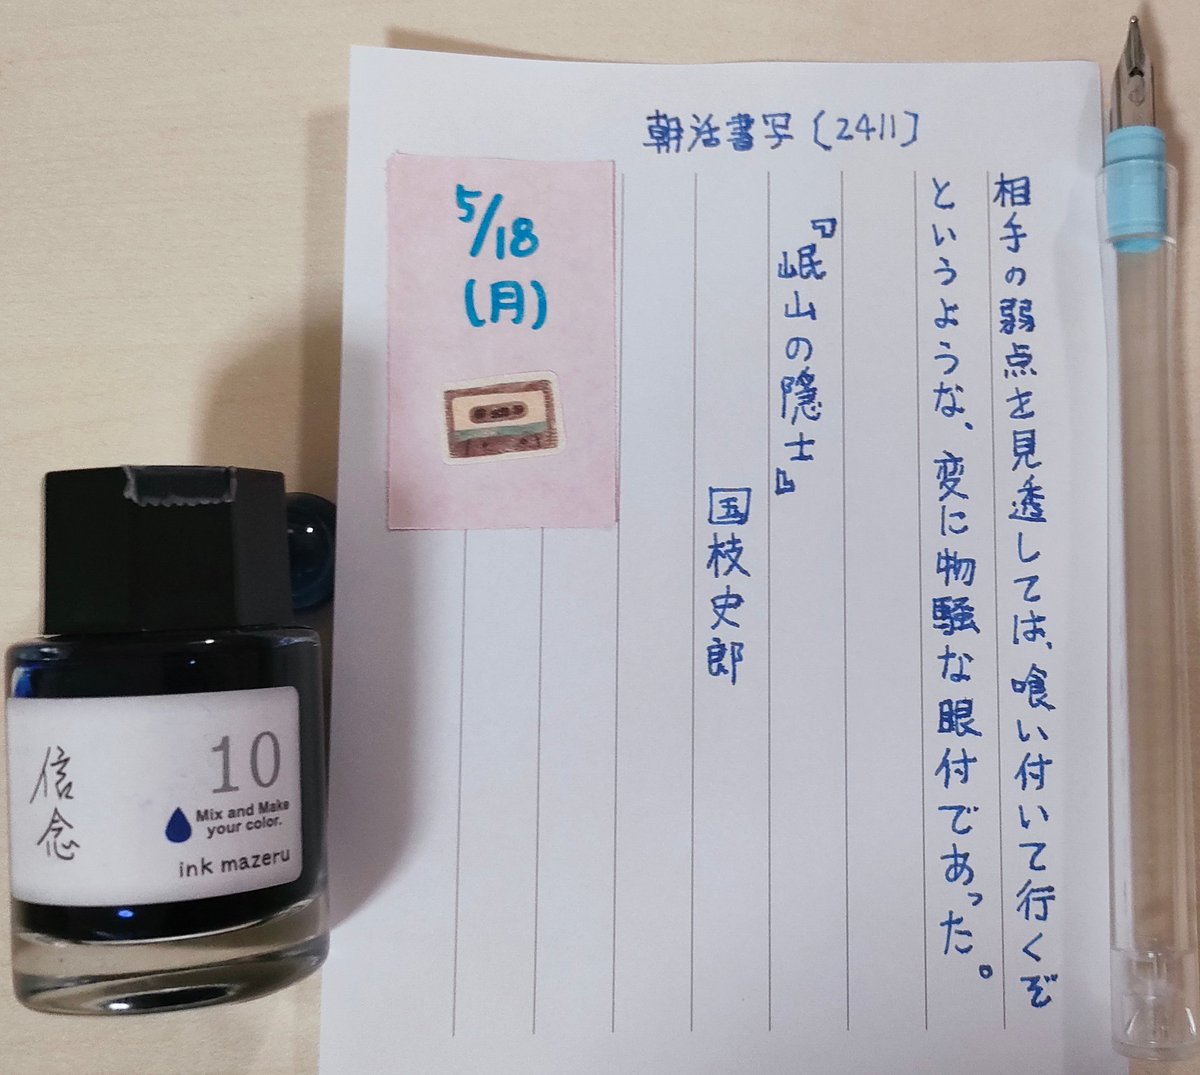 朝活書写〔2411〕
相手の弱点を見透しては、喰い付いて行くぞ
というような、変に物騒な眼付であった。
『岷山の隠士』
国枝史郎
5/18
(月)
10
信念
Mix and Make
your color.
ink mazeru